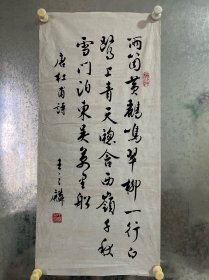 两箇黄鸝鳴翠柳一行白
鷺上青天窗含西嶺千秋
雪门泊東吴萬里船
唐杜甫詩
王之麟